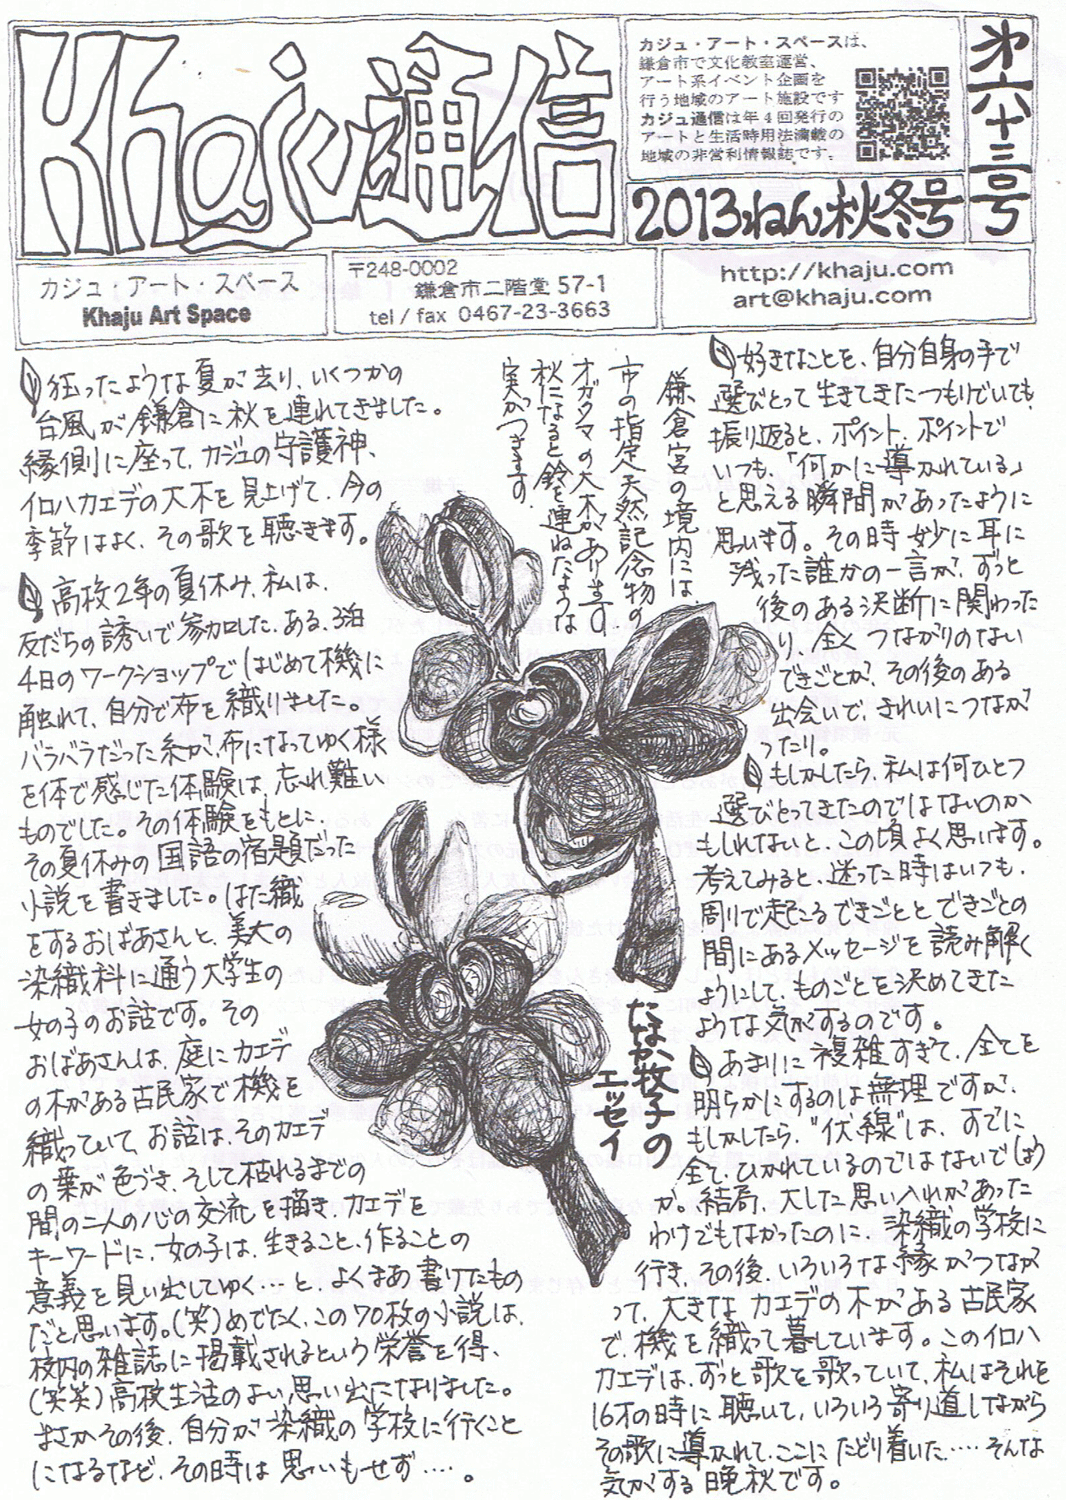 Khaju通信
カジュ・アート・スペースは、
鎌倉市で文化教室運営、
アート系イベント企画を
行う地域のアート施設です
カジュ通信は年4回発行の
アートと生活時用法満載の
地域の非営利情報誌です。
第六十三号
2013ねん秋冬号
カジュ・アート・スペース
Khaju Art Space
〒248-0002
鎌倉市二階堂 57-1
tel / fax 0467-23-3663
http://khaju.com
art@khaju.com
狂ったような夏が去り、いくつかの
台風が鎌倉に秋を連れてきました。
縁側に座って、カジュの守護神、
イロハカエデの大木を見上げて、今の
季節はよく、その歌を聴きます。
高校2年の夏休み、私は、
友だちの誘いで参加した、ある、3泊
4日のワークショップではじめて機に
触れて、自分で布を織りました。
バラバラだった糸が、布になってゆく様
を体で感じた体験は、忘れ難い
ものでした。その体験をもとに、
その夏休みの国語の宿題だった
小説を書きました。はた織
をするおばあさんと、美大の
染織科に通う大学生の
女の子のお話です。その
おばあさんは、庭にカエデ
の木がある古民家で機を
織っていて、お話は、そのカエデ
の葉が色づき、そして枯れるまでの
間の二人の心の交流を描き、カエデを
キーワードに、女の子は、生きること、作ることの
意義を見い出してゆく…と、よくまあ書けたもの
だと思います。(笑)めでたく、この70枚の小説は、
校内の雑誌に掲載されるという栄誉を得、
(笑笑)高校生活のよい思い出になりました。
まさかその後、自分が染織の学校に行くこと
になるなど、その時は思いもせず…。
鎌倉宮の境内には、
市の指定天然記念物の
オガタマの大木があります。
秋になると鈴を連ねたような
実がつきます。
たなか牧子の
エッセイ
好きなことを、自分自身の手で
選びとって生きてきたつもりでいても、
振り返ると、ポイント、ポイントで
いつも、「何かに導かれている」
と思える瞬間があったように
思います。その時妙に耳に
残った誰かの一言が、ずっと
後のある決断に関わった
り、全くつながりのない
できごとが、その後のある
出会いで、きれいにつなが
ったり。
もしかしたら、私は何ひとつ
選びとってきたのではないのか
もしれないと、この頃よく思います。
考えてみると、迷った時はいつも、
周りで起こるできごととできごとの
間にあるメッセージを読み解く
ようにして、ものごとを決めてきた
ような気がするのです。
あまりに複雑すぎて、全てを
明らかにするのは無理ですが、
もしかしたら、"伏線"は、すでに
全て、ひかれているのではないでしょう
か。結局、大した思い入れがあった
わけでもなかったのに、染織の学校に
行き、その後、いろいろな縁がつなが
って、大きなカエデの木がある古民家
で、機を織って暮しています。このイロハ
カエデは、ずっと歌を歌っていて、私はそれを
16才の時に聴いて、いろいろ寄り道しながら
その歌に導かれて、ここにたどり着いた……そんな
気がする晩秋です。